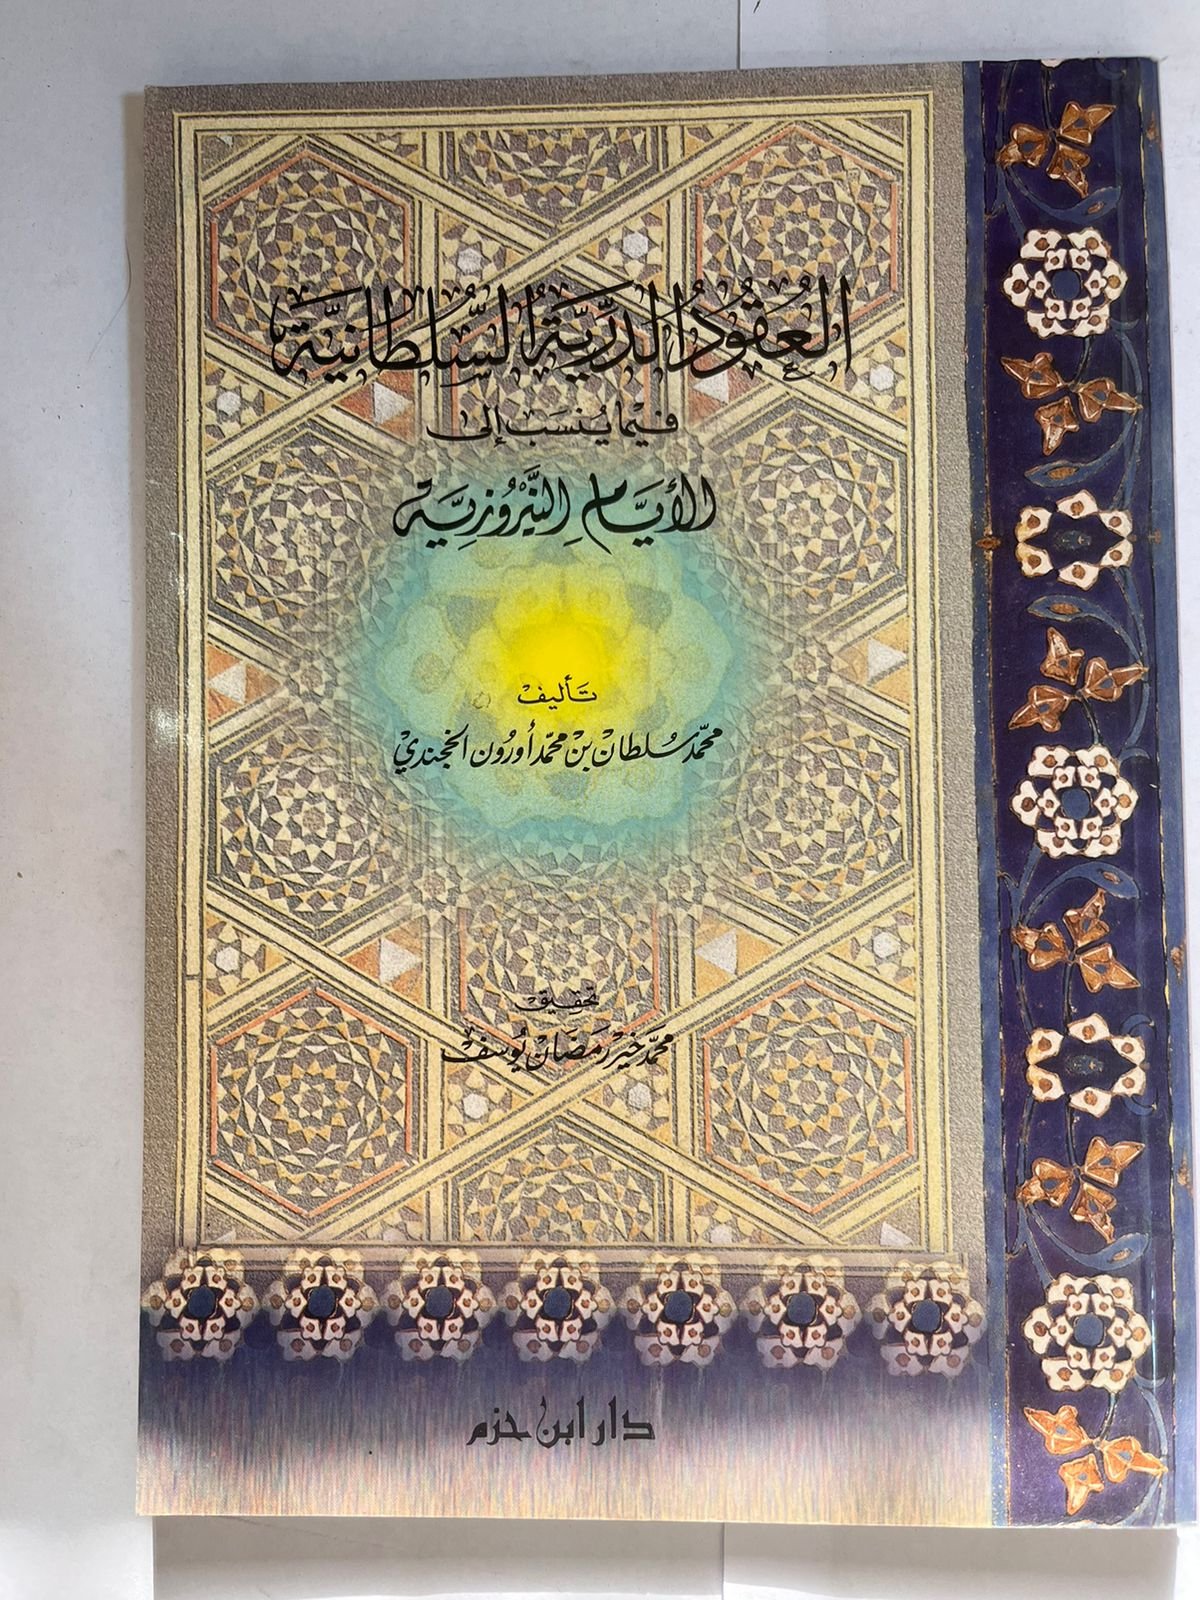 العُقُودُ الدرِّيَّةُ السُّلطَانيَّة
فيْمَا يُنسَب إلى
الأيَّامِ النَّيْرُوزِيَّة
تأليفْ
محمّد سُلطانْ بنْ محمّد أورُون الخجندي
تحقِيق
محمّد خَيْر رَمضَانْ يُوسف
دار ابن حزم